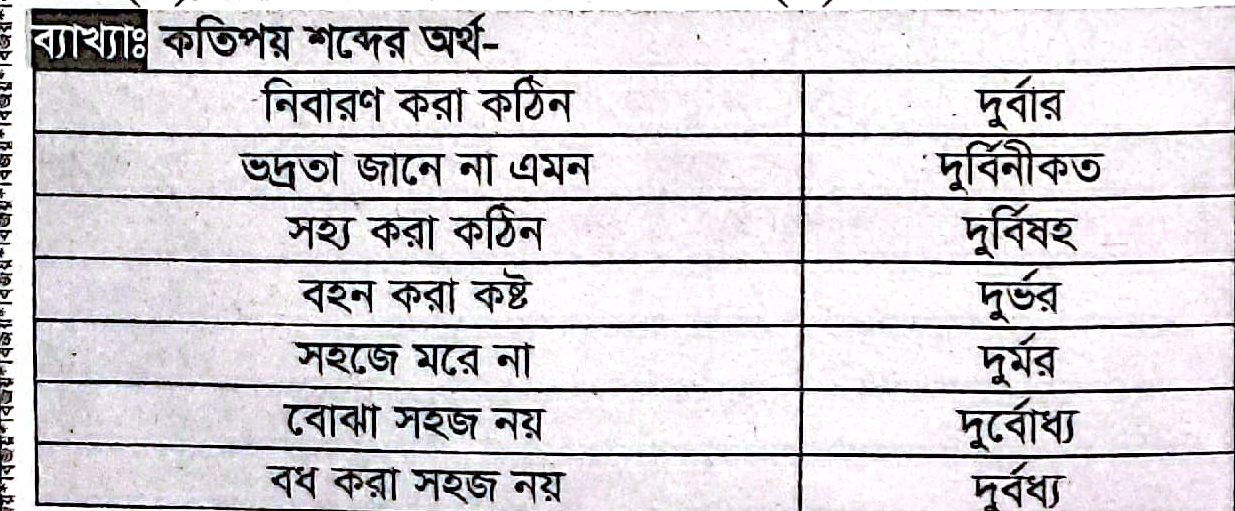 ব্যাখ্যাঃ কতিপয় শব্দের অর্থ-
নিবারণ করা কঠিন দুর্বার
ভদ্রতা জানে না এমন দুর্বিনীকত
সহ্য করা কঠিন দুর্বিষহ
বহন করা কষ্ট দুর্ভর
সহজে মরে না দুর্মর
বোঝা সহজ নয় দুর্বোধ্য
বধ করা সহজ নয় দুর্বধ্য